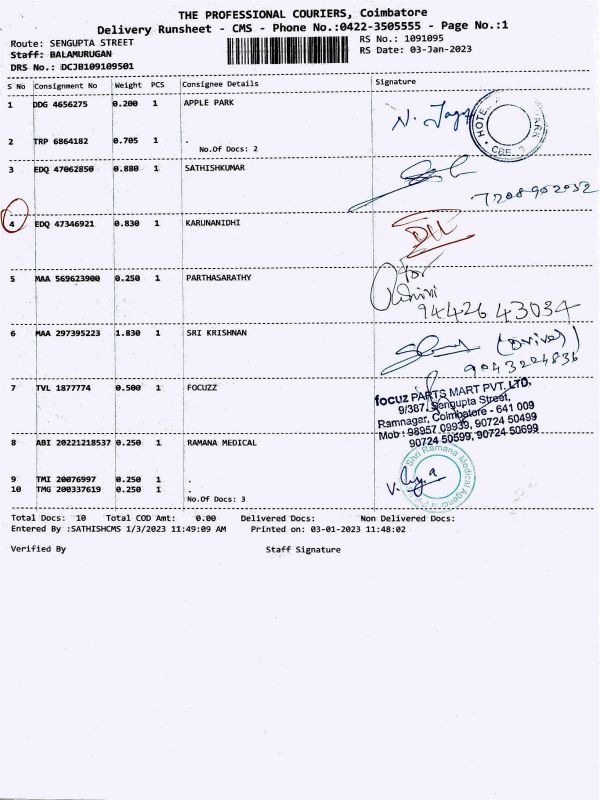 THE PROFESSIONAL COURIERS, Coimbatore
Delivery Runsheet - CMS - Phone No.:0422-3505555 - Page No.:1
Route: SENGUPTA STREET RS No.: 1091095
Staff: BALAMURUGAN RS Date: 03-Jan-2023
DRS No.: DCJB109109501
S No Consignment No Weight PCS Consignee Details Signature
1 DDG 4656275 0.200 1 APPLE PARK
2 TRP 6864182 0.705 1 .
No.Of Docs: 2
3 EDQ 47062850 0.880 1 SATHISHKUMAR
7208902032
4 EDQ 47346921 0.830 1 KARUNANIDHI
5 MAA 569623900 0.250 1 PARTHASARATHY
for
94426 43034
6 MAA 297395223 1.830 1 SRI KRISHNAN
(Driver)
9043224836
7 TVL 1877774 0.500 1 FOCUZZ
focuz PARTS MART PVT. LTD,
9/387, Sengupta Street,
Ramnagar, Coimbatore - 641 009
Mob : 98957 09939, 90724 50499
90724 50599, 90724 50699
8 ABI 20221218537 0.250 1 RAMANA MEDICAL
Shri Ramana Medical
9 TMI 20076997 0.250 1 .
10 TMG 200337619 0.250 1 .
No.Of Docs: 3
Total Docs: 10 Total COD Amt: 0.00 Delivered Docs: Non Delivered Docs:
Entered By :SATHISHCMS 1/3/2023 11:49:09 AM Printed on: 03-01-2023 11:48:02
Verified By Staff Signature